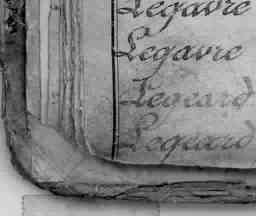 Legavre
Legavre
Legeard
Legeard